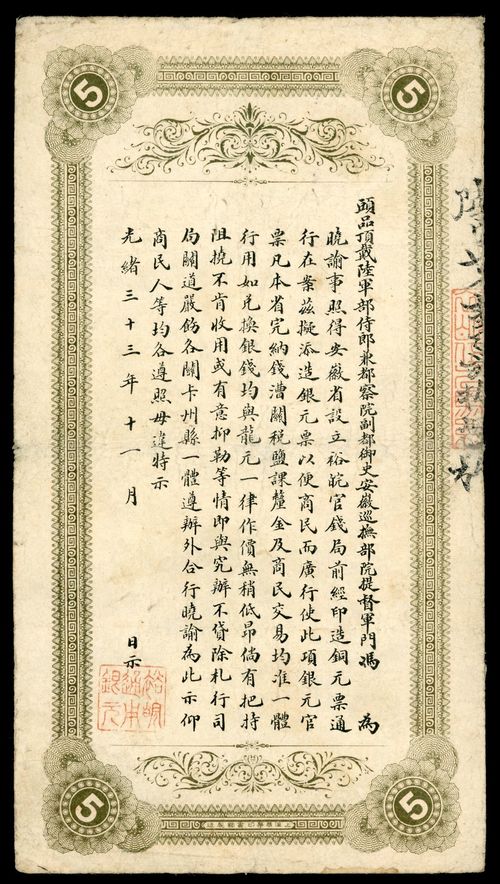 頭品頂戴陸軍部侍郎兼都察院副都御史安徽巡撫部院提督軍門馮 為
曉諭事照得安徽省設立裕皖官錢局前經印造銅元票通
行在案茲擬添造銀元票以便商民而廣行使此項銀元官
票凡本省完納錢漕關稅鹽課釐金及商民交易均准一體
行用如兌換銀錢均與龍元一律作價無稍低昂倘有把持
阻撓不肯收用或有意抑勒等情即與究辦不貸除札行司
局關道嚴飭各關卡州縣一體遵辦外合行曉諭為此示仰
商民人等均各遵照毋違特示
光緒三十三年十一月
日示
5
5
5
5